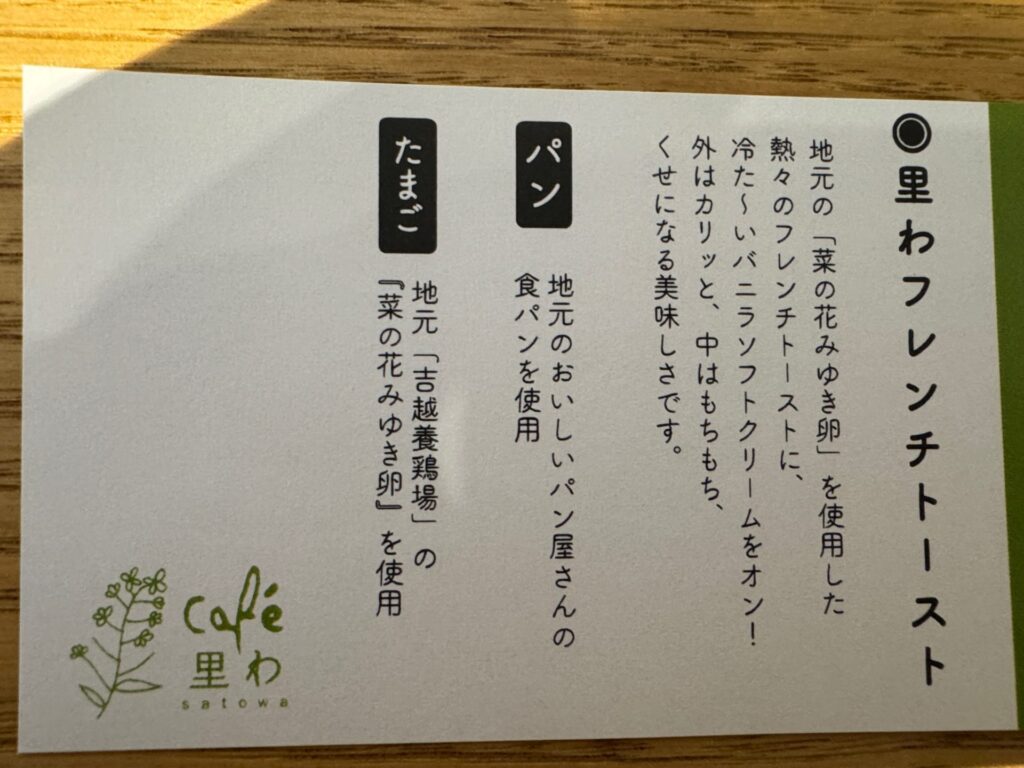 ◉里わフレンチトースト
地元の「菜の花みゆき卵」を使用した
熱々のフレンチトーストに、
冷た〜いバニラソフトクリームをオン！
外はカリッと、中はもちもち、
くせになる美味しさです。
パン
地元のおいしいパン屋さんの
食パンを使用
たまご
地元「吉越養鶏場」の
『菜の花みゆき卵』を使用
café
里わ
satowa